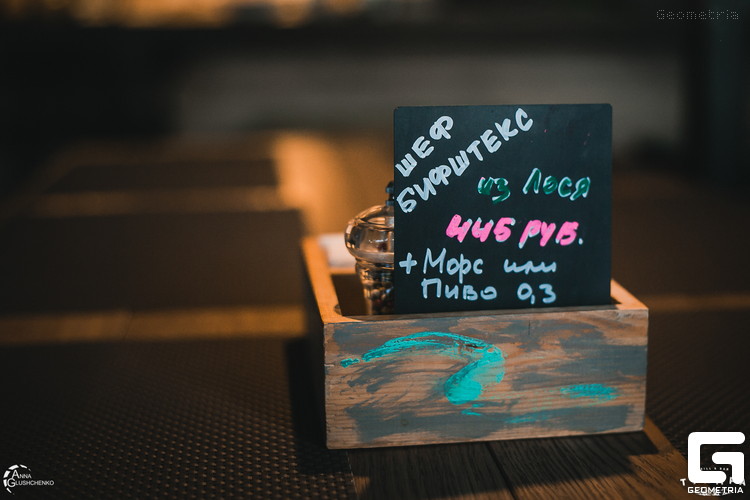 Geometria
ШЕФ
БИФШТЕКС
из Лося
445 РУБ.
+ Морс или
Пиво 0,3
ANNA
GLUSHCHENKO
G
GEOMETRIA